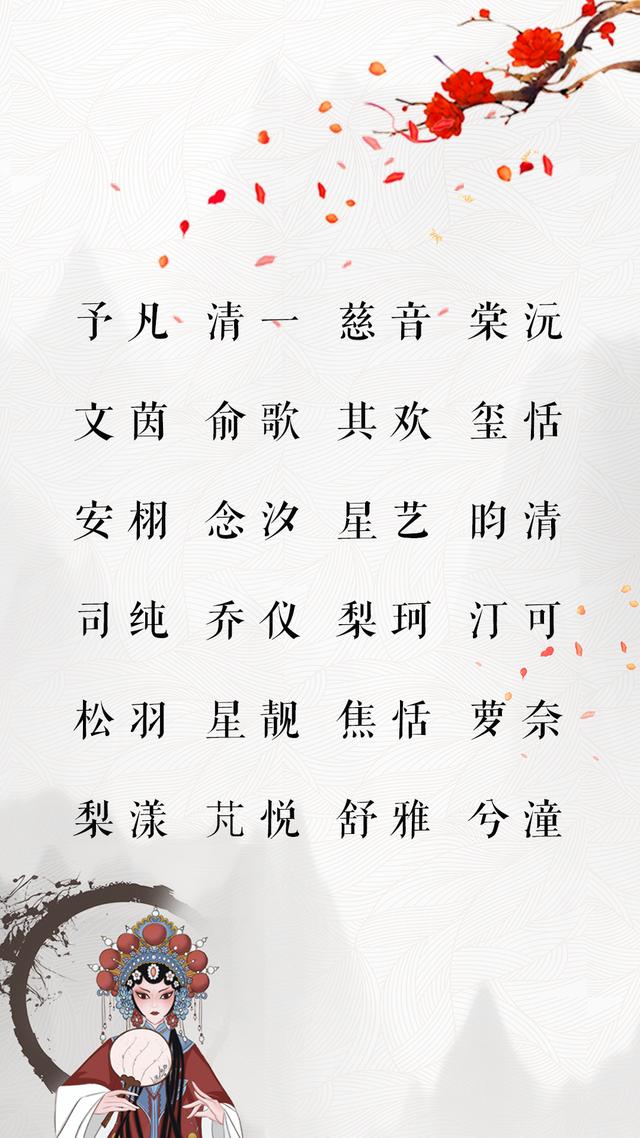 予凡 清一 慈音 棠沅
文茵 俞歌 其欢 玺恬
安栩 念汐 星艺 昀清
司纯 乔仪 梨珂 汀可
松羽 星靓 焦恬 萝奈
梨漾 芃悦 舒雅 兮潼